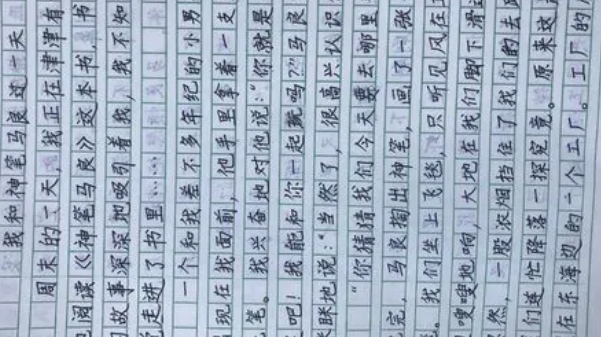 我和神笔马良过一天
周末的一天，我正在津津有
阅读《神笔马良》这本书，书
故事深深地吸引着我，我不知
走进了书里……
一个和我差不多年纪的小男
现在我面前，他手里拿着一支
笔。我兴奋地对他说：“你就是
吧！我能和你一起玩吗？”马良
眯地说：“当然了，很高兴认识
“你猜猜我们今天要去哪里
完，马良掏出神笔，画了一张
。我们坐上飞毯，只听见风在
嗖嗖地响，大地在我们脚下滑
然，一股浓烟挡住了我们的去
们连忙降落一探究竟。原来这
在东海边的一个工厂。工厂的